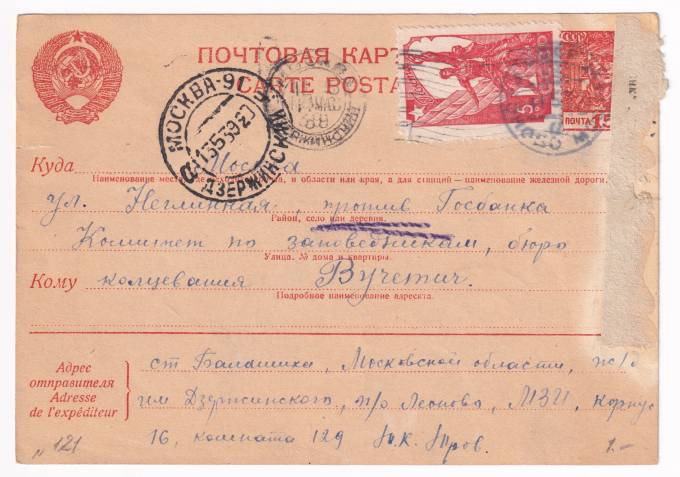 ПОЧТОВАЯ КАРТ
CARTE POSTA
СССР
ПОЧТА 15
5
МОСКВА-9
13 5 39
ДЗЕРЖИНСК
Куда Москва
Наименование места, и области или края, а для станций—наименование железной дороги.
ул. Неглинная, против Госбанка
Район, село или деревня.
Комитет по заповедникам, бюро
Улица. № дома и квартиры.
Кому кольцевания Вучетич.
Подробное наименование адресата.
Адрес отправителя
Adresse de l'expéditeur
ст Балашиха, Московской области, по ж/д
им Дзержинского, п/о Леоново, МЗИ, корпус
16, комната 129
N 121
1.–